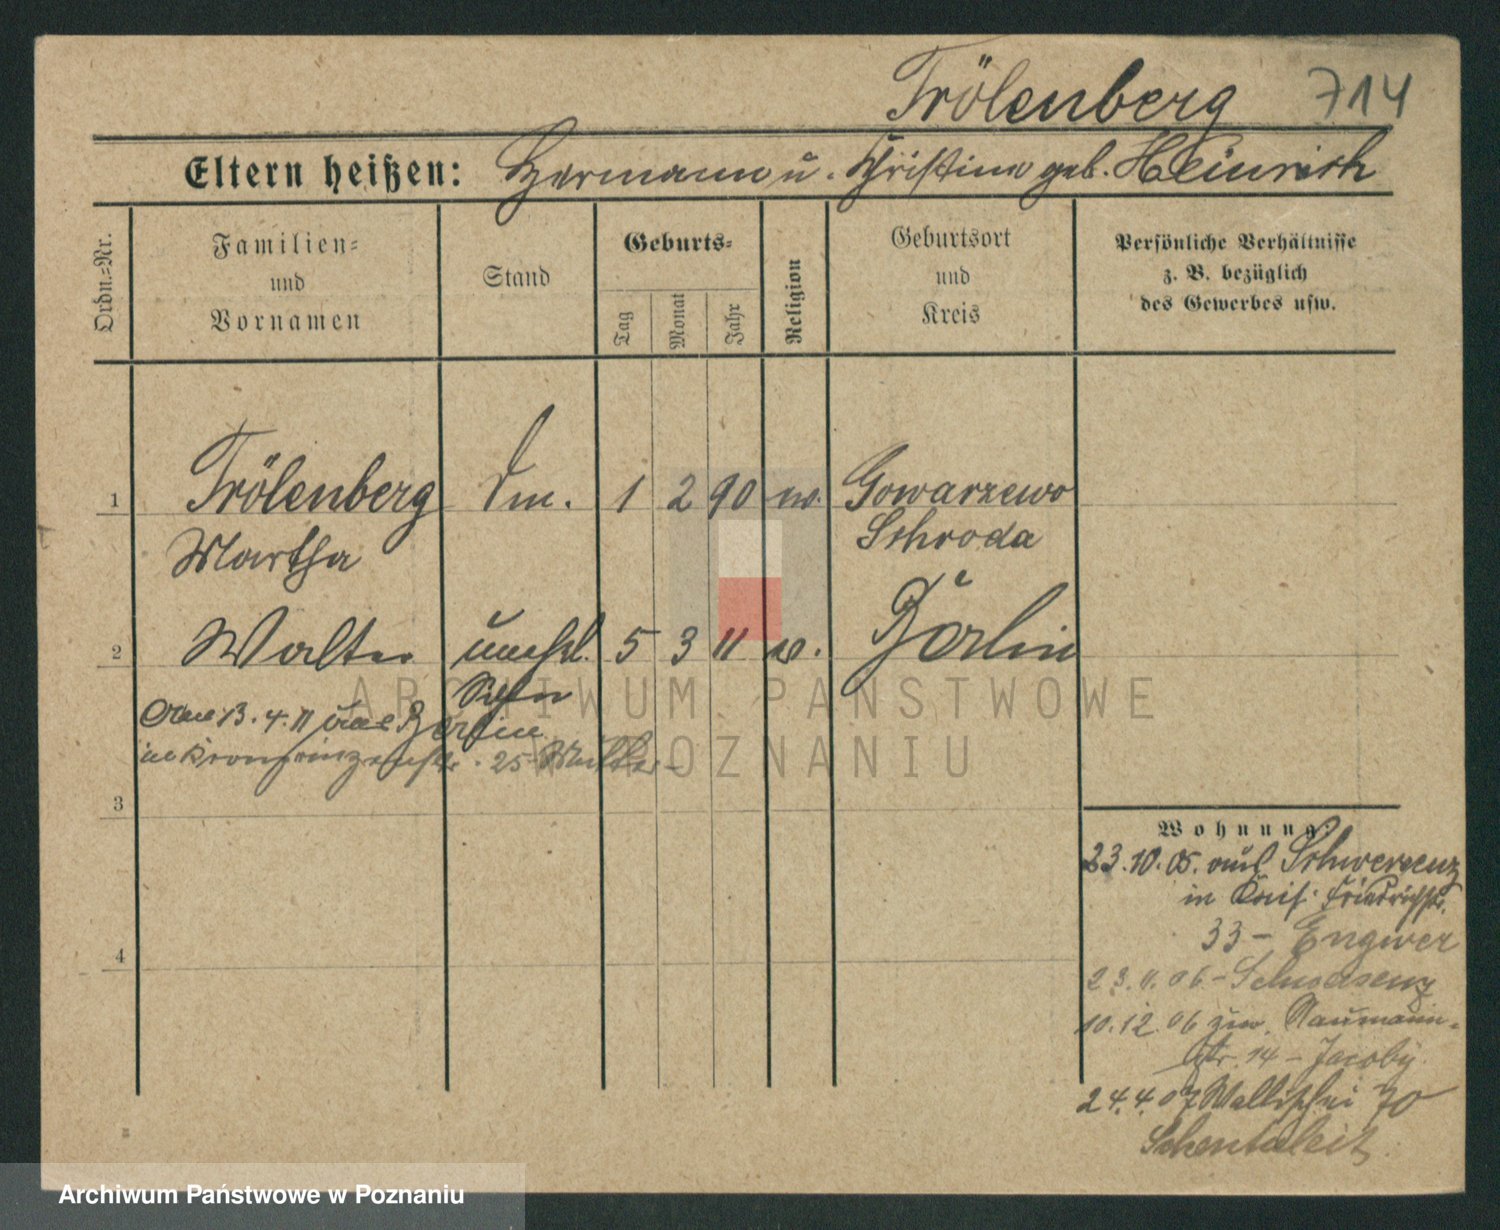 Frölenberg 714
Eltern heißen: Hermann u. Christine geb. Heinrich
Ordn.-Nr.
Familien-
und
Vornamen
Stand
Geburts-
Tag
Monat
Jahr
Religion
Geburtsort
und
Kreis
Persönliche Verhältnisse
z. B. bezüglich
des Gewerbes usw.
1 Frölenberg Dm. 1 2 90 ev. Gowarzewo
Martha Schroda
2 Walter unehel. 5 3 11 ev. Berlin
Sohn
13.4.11 aus Berlin
in Kronprinzenstr. 25
3
4
Wohnung:
23.10.05. aus Schwersenz
in Kais. Friedrichstr.
33 - Engwer
23.11.06 - Schwersenz
10.12.06 zur. Naumann-
str. 14 - Jacoby
24.4.07 Wallischei 70
ARCHIWUM PAŃSTWOWE
W POZNANIU
Archiwum Państwowe w Poznaniu